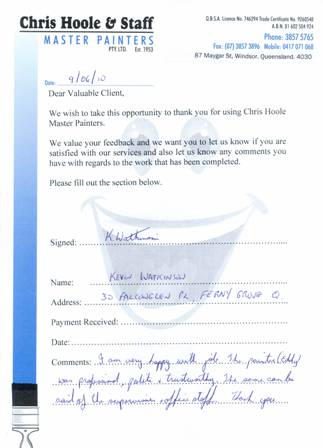 Chris Hoole & Staff
MASTER PAINTERS
PTY LTD. Est. 1953
Q.B.S.A. Licence No. 746294 Trade Certificate No. 9260548
A.B.N. 81 602 504 924
Phone: 3857 5765
Fax: (07) 3857 3896 Mobile: 0417 071 068
87 Maygar St, Windsor, Queensland. 4030
Date: 9/06/10
Dear Valuable Client,
We wish to take this opportunity to thank you for using Chris Hoole
Master Painters.
We value your feedback and we want you to let us know if you are
satisfied with our services and also let us know any comments you
have with regards to the work that has been completed.
Please fill out the section below.
Signed: K Watkinson
Name: KEVIN WATKINSON
Address: 30 FALCONGLEN PL FERNY GROVE Q
Payment Received:
Date:
Comments: I am very happy with job. The painter
was professional, polite & trustworthy. The same can be
said of the supervisor & office staff. Thank you